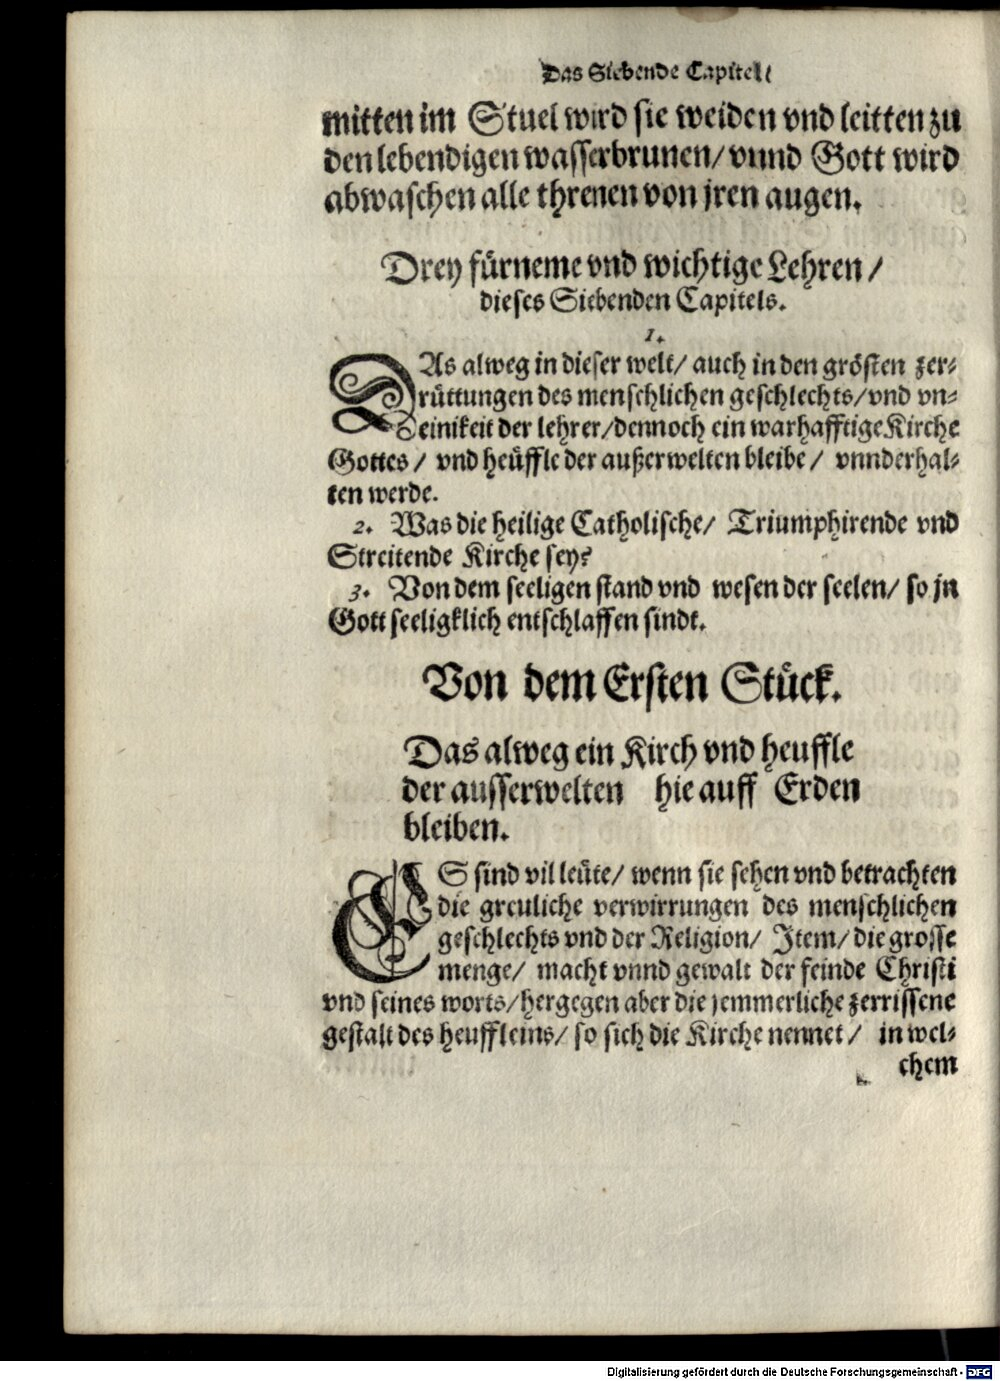 Das Siebende Capitel/
mitten im Stuel wird sie weiden vnd leitten zu
den lebendigen wasserbrunen/ vnnd Gott wird
abwaschen alle threnen von jren augen.
Drey fürneme vnd wichtige Lehren /
dieses Siebenden Capitels.
1.
DAs alweg in dieser welt/ auch in den grösten zer-
rüttungen des menschlichen geschlechts/ vnd vn-
einikeit der lehrer/ dennoch ein warhafftige Kirche
Gottes / vnd heüffle der außerwelten bleibe / vnnderhal-
ten werde.
2. Was die heilige Catholische/ Triumphirende vnd
Streitende Kirche sey?
3. Von dem seeligen stand vnd wesen der seelen/ so jn
Gott seeligklich entschlaffen sindt.
Von dem Ersten Stück.
Das alweg ein Kirch vnd heuffle
der ausserwelten hie auff Erden
bleiben.
ES sind vil leüte/ wenn sie sehen vnd betrachten
die greuliche verwirrungen des menschlichen
geschlechts vnd der Religion/ Item/ die grosse
menge/ macht vnnd gewalt der feinde Christi
vnd seines worts/ hergegen aber die jemmerliche zerrissene
gestalt des heuffleins/ so sich die Kirche nennet / in wel-
chem
Digitalisierung gefördert durch die Deutsche Forschungsgemeinschaft - DFG